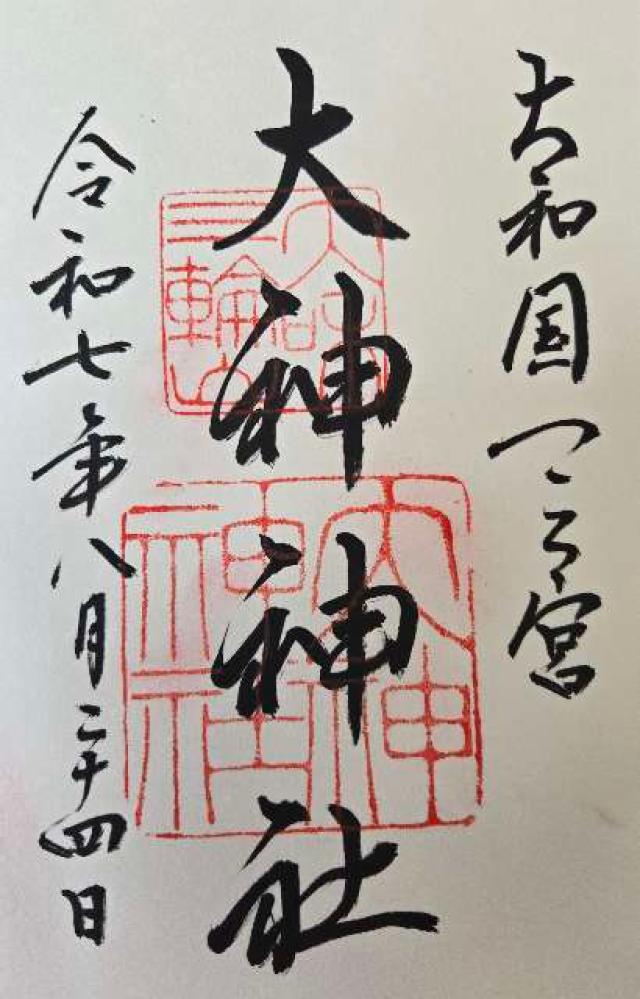 大和国一之宮
大神神社
令和七年八月二十四日
三輪山
大神
神社